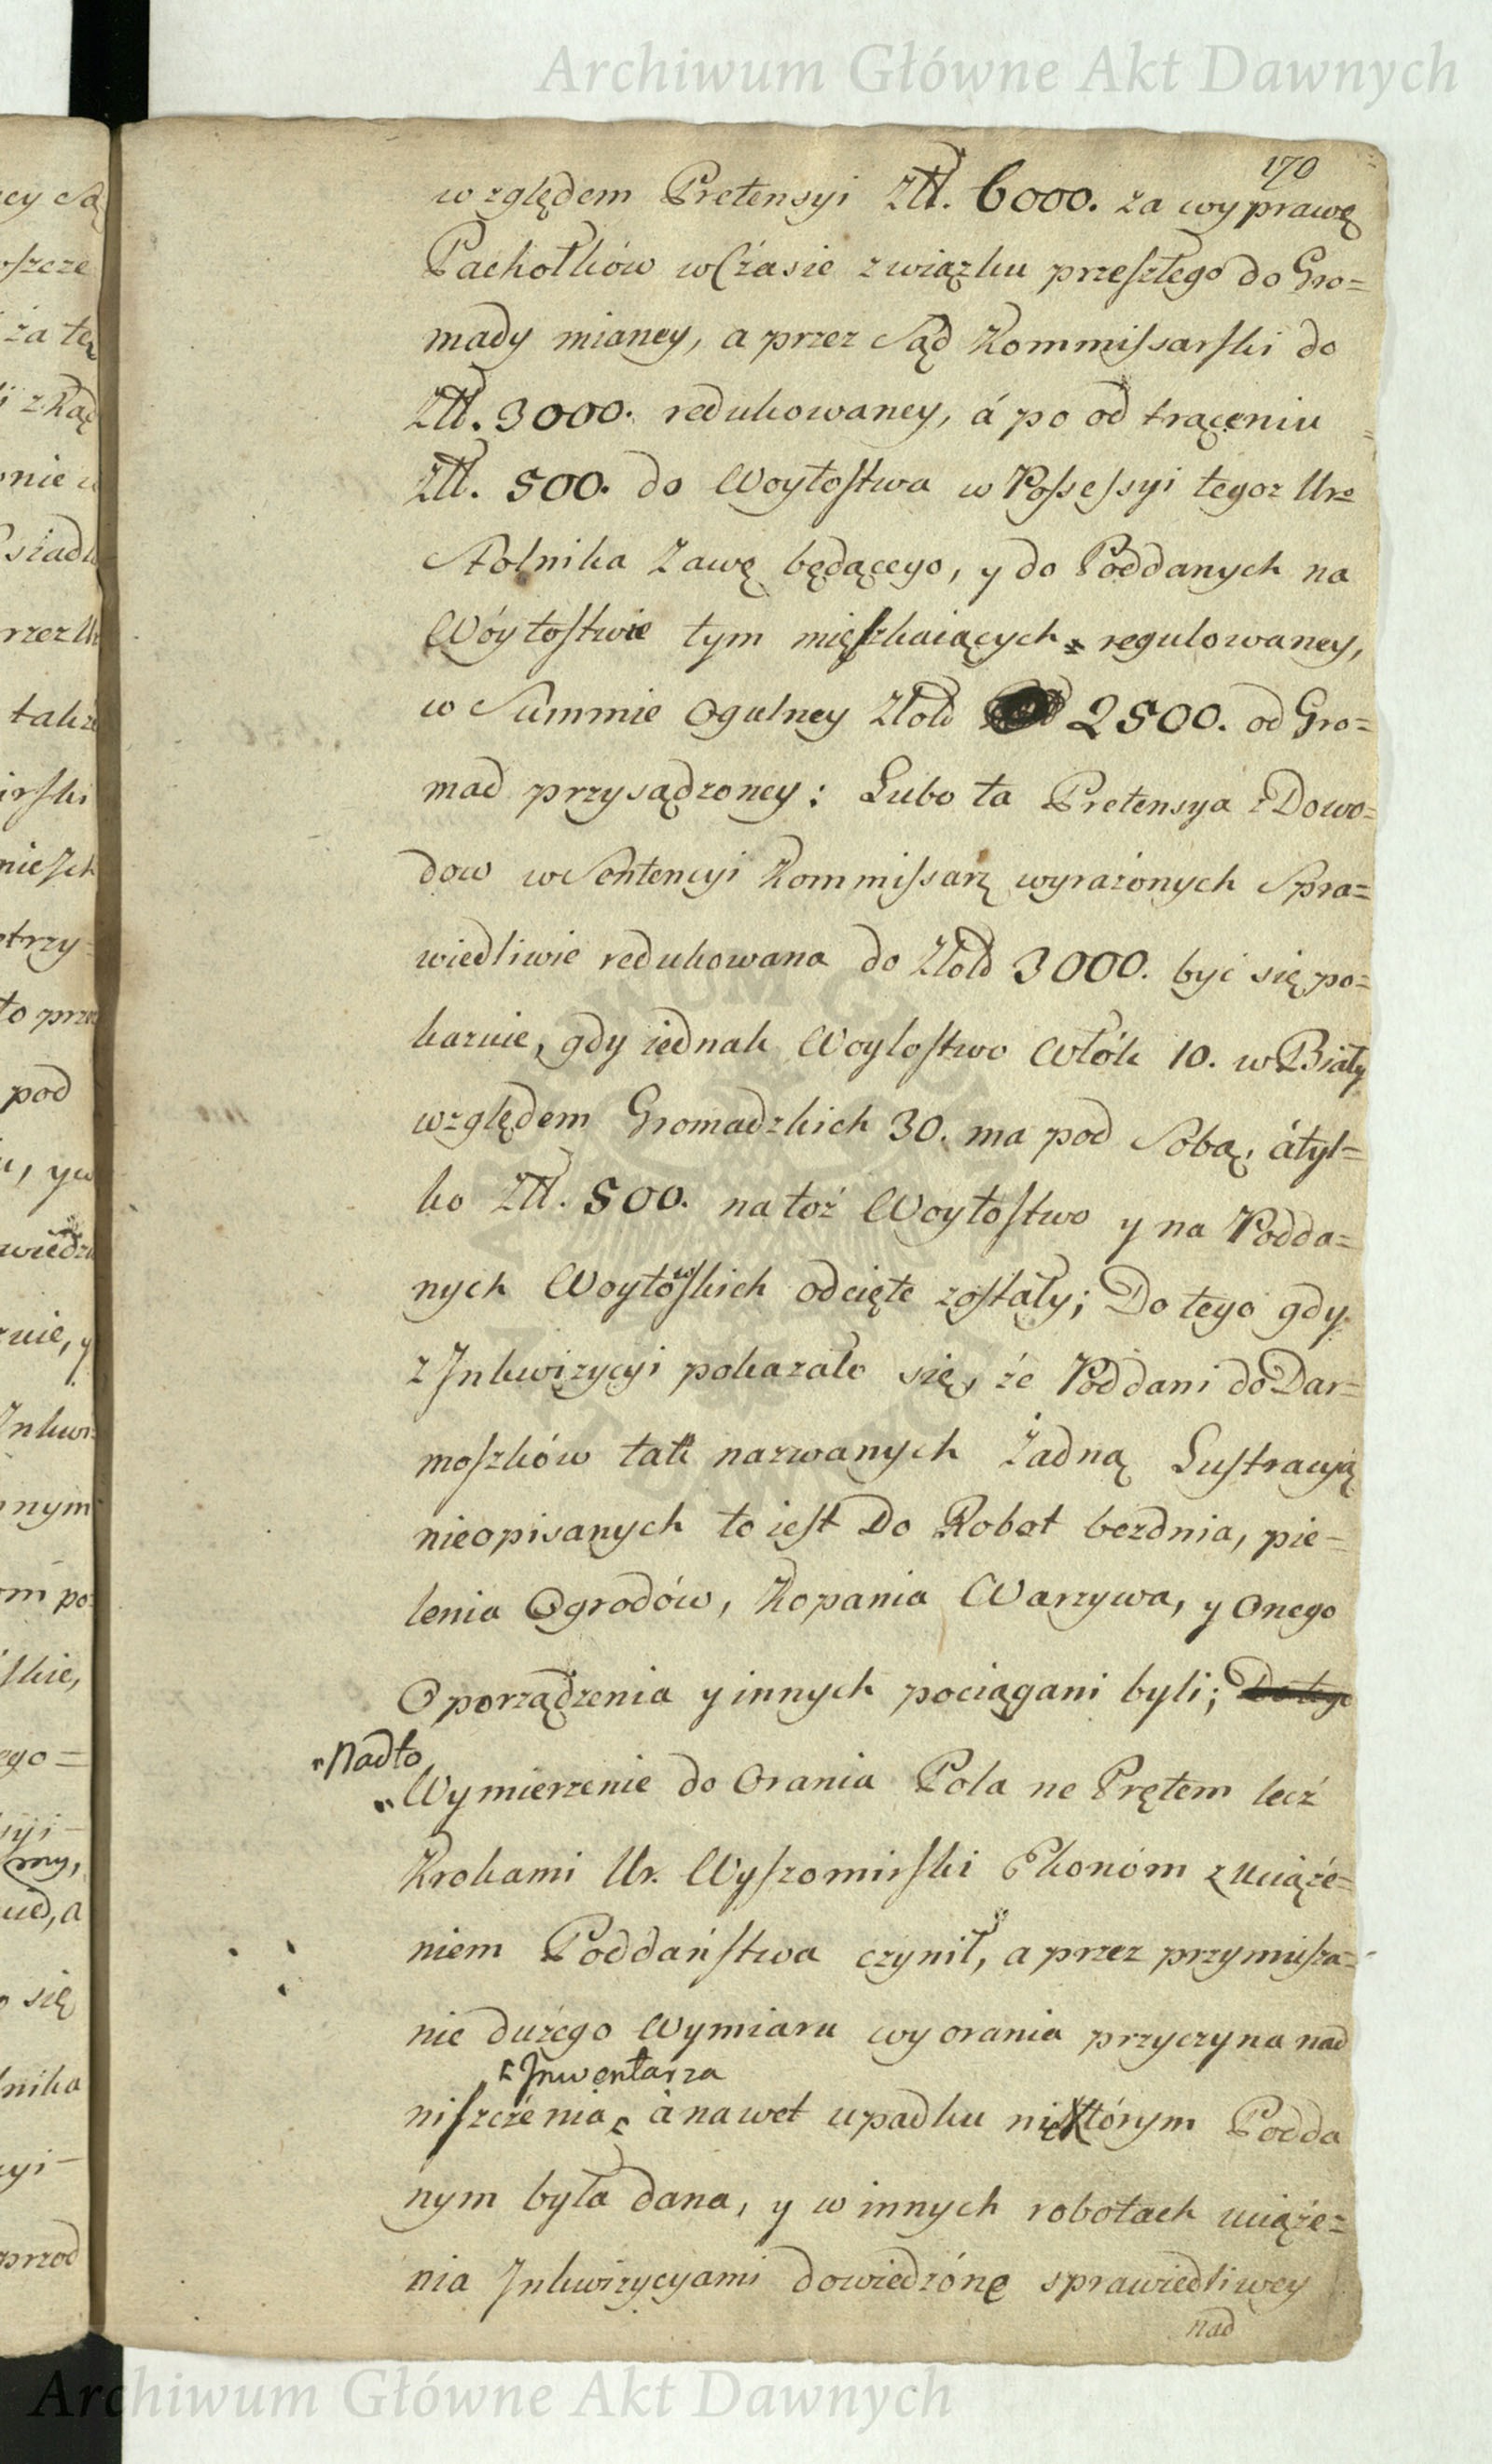 Archiwum Główne Akt Dawnych
170
względem Pretensyi Złł. 6000. za wyprawę
Pachołków w Czasie związku przeszłego do Gro=
mady mianey, a przez Sąd Kommissarski do
Złł. 3000. redukowaney, á po od trąceniu
Złł. 500. do Woytostwa w Possessyi tegoż Ur°
Stolnika Zawę będącego, y do Poddanych na
Wóytostwie tym mięszkaiących regulowaney,
w Summie Ogulney Złotd 2500. od Gro=
mad przysądzoney: Lubo ta Pretensya z Dowo=
dow w Sentencyi Kommissarz wyrażonych Spra=
wiedliwie redukowana do Złotd 3000. być się po=
kazuie, gdy iednak Woytostwo Włók 10. w Biały
względem Gromadzkich 30. ma pod Sobą, á tyl=
ko Złł. 500. na toż Woytostwo y na Podda=
nych Woytowskich odcięte zostały; Do tego gdy
z Inkwizycyi pokazało się, że Poddani do Dar=
moszków tak nazwanych Żadną Lustracyią
nieopisanych to iest Do Robot bezdnia, pie=
lenia Ogrodów, Kopania Warzywa, y Onego
Oporządzenia y innych pociągani byli; Do tego
Nadto
Wymierzenie do Orania Pola ne Prętem lecz
Krokami Ur. Wyszomirski Ekonóm z uciąże=
niem Poddaństwa czynił, a przez przymusza=
nie dużego Wymiaru wyorania przyczyna nad
Inwentarza
niszczenia, á nawet upadku niektórym Podda
nym była dana, y w innych robotach uciąże=
nia Inkwizycyami dowiedzónę sprawiedliwey
nad
Archiwum Główne Akt Dawnych